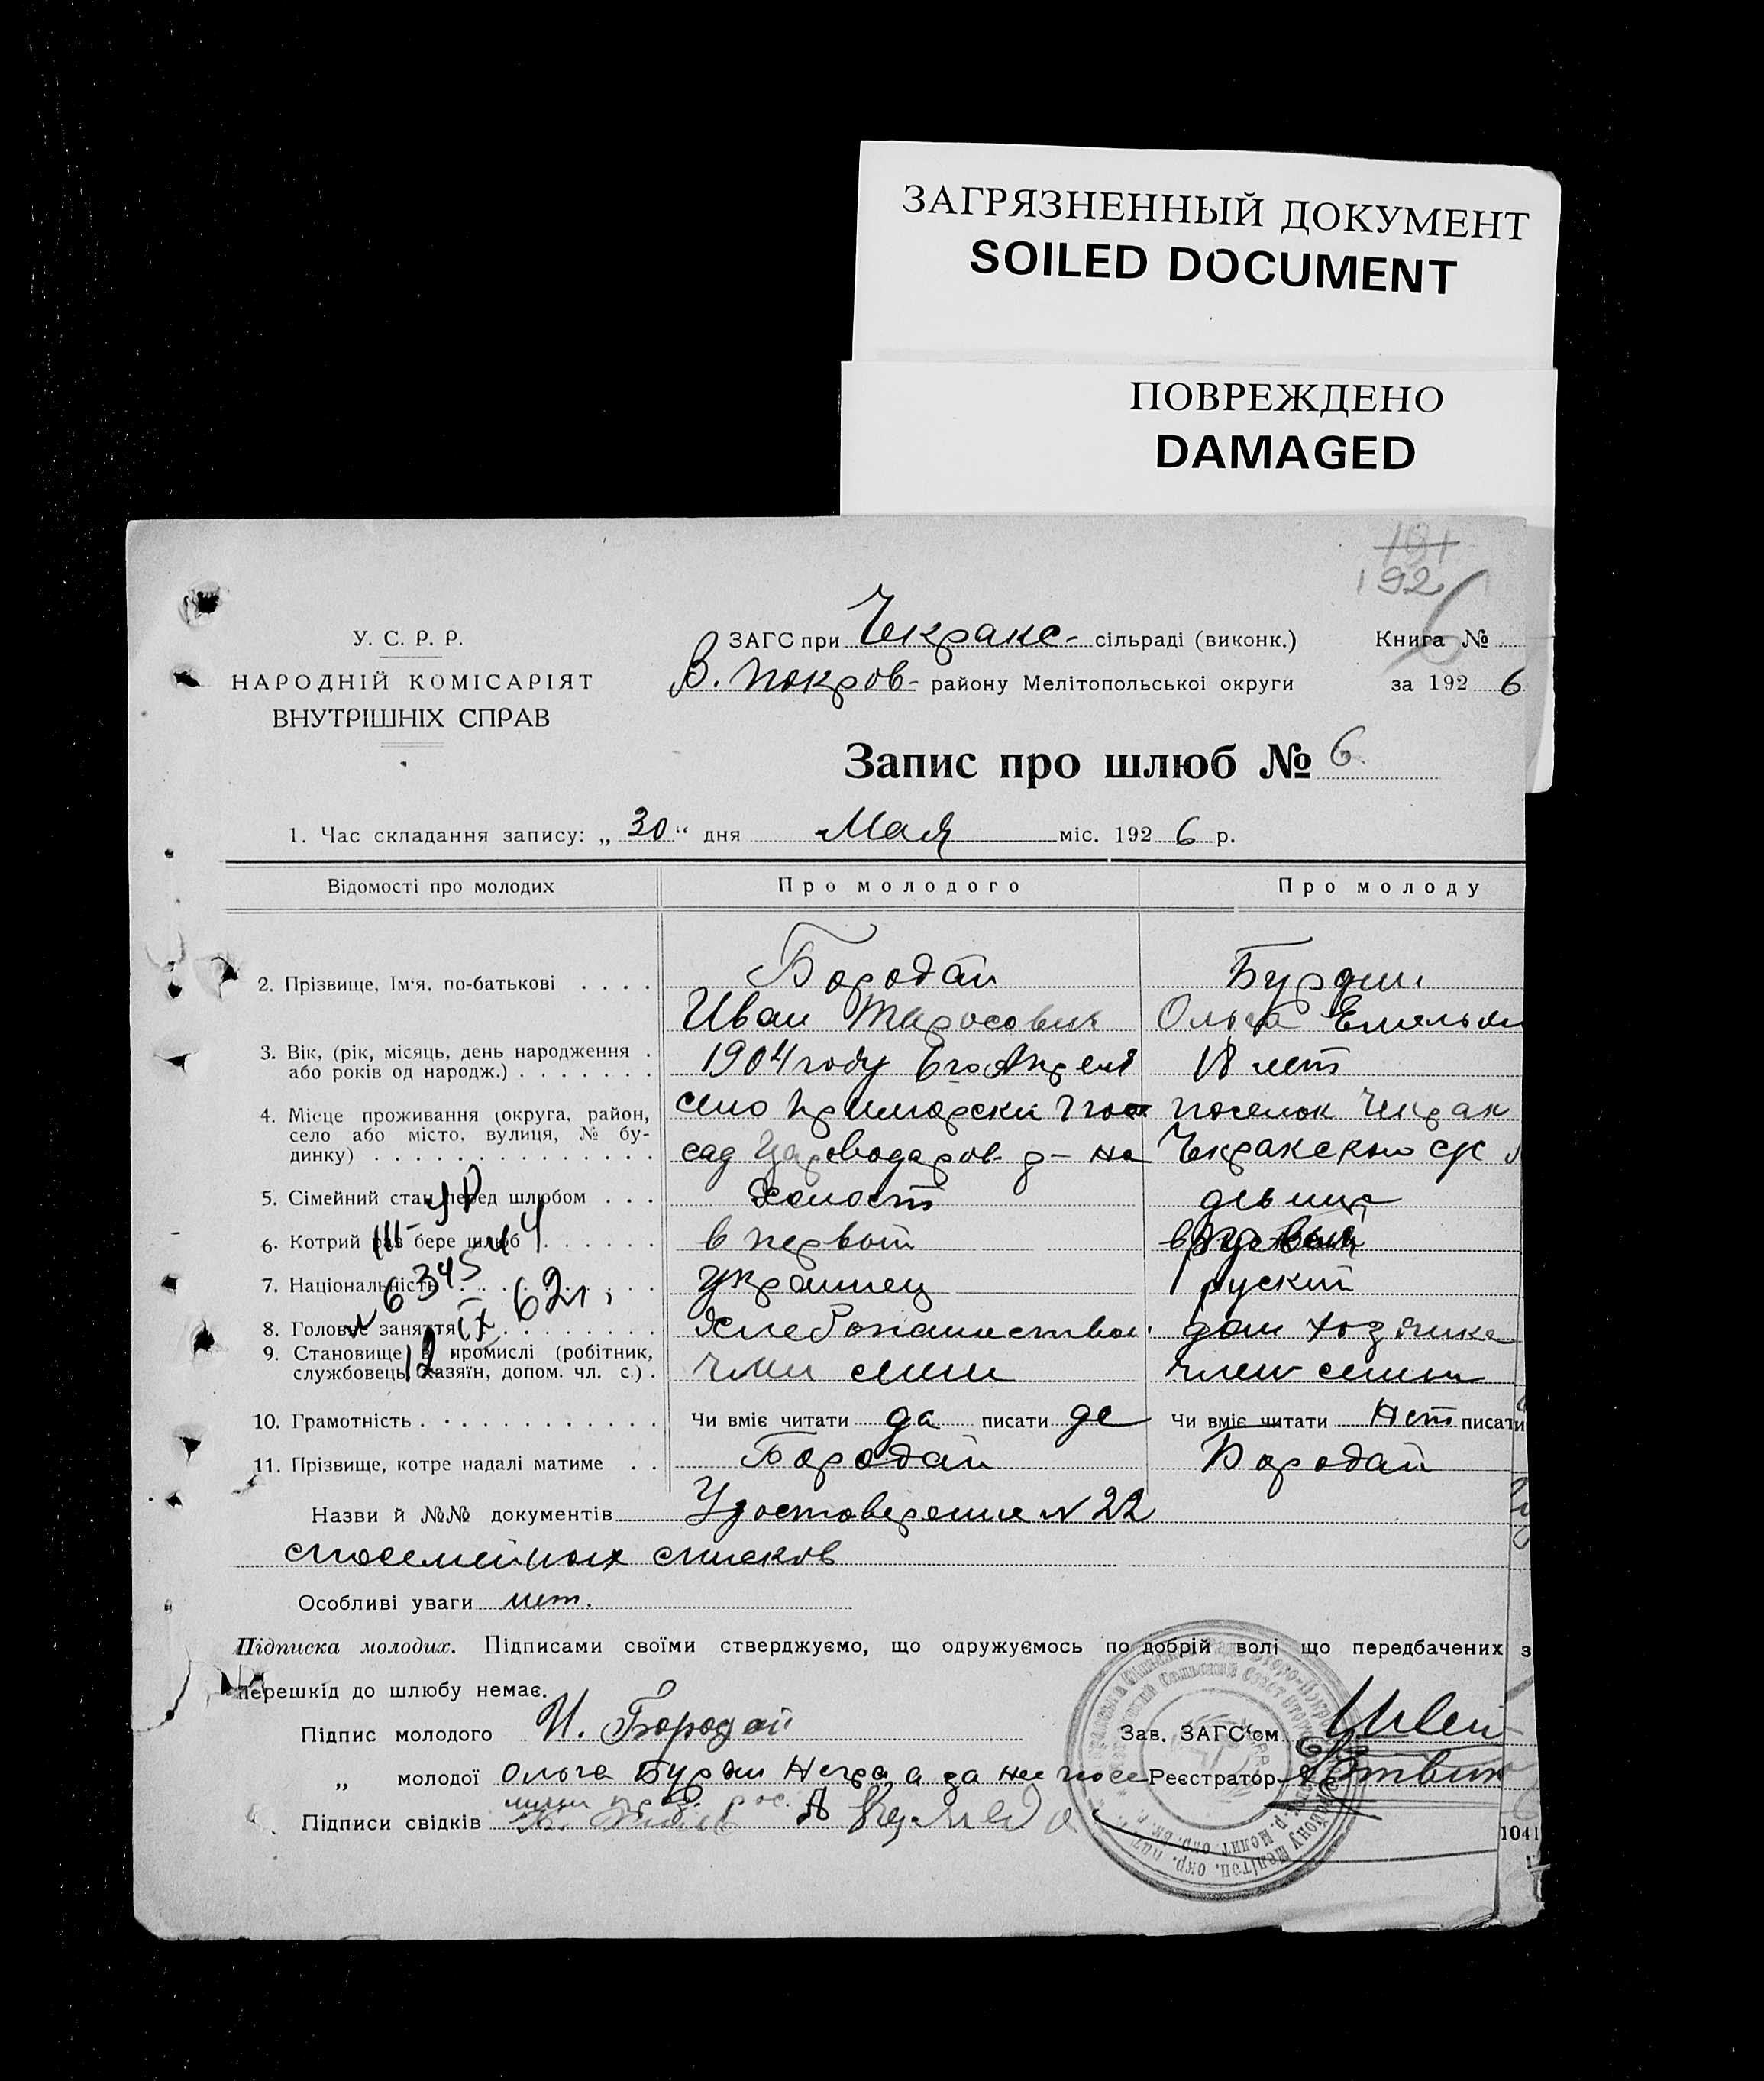 ЗАГРЯЗНЕННЫЙ ДОКУМЕНТ
SOILED DOCUMENT
ПОВРЕЖДЕНО
DAMAGED
191
192
У. С. Р. Р.
НАРОДНІЙ КОМІСАРІЯТ
ВНУТРІШНІХ СПРАВ
ЗАГС при Чекракс- сільраді (виконк.) Книга №
В. Покров- району Мелітопольської округи за 1926
Запис про шлюб № 6
1. Час складання запису: „30“ дня Мая міс. 1926 р.
Відомості про молодих Про молодого Про молоду
2. Прізвище, Ім'я, по-батькові . . . . Бородай Бурдин
Иван Таросович Ольга Емельян
3. Вік, (рік, місяць, день народження . 1904 году 6го Апреля 18 лет
або років од народж.) . . . . . . .
4. Місце проживання (округа, район, село Приморски Пос поселок Чекрак
село або місто, вулиця, № бу-
динку) . . . . . . . . . . . . . . сад Цареводаров. р-на Чекракского с/с
5. Сімейний стан перед шлюбом . . . холост девица
6. Котрий раз бере шлюб . . . . . . в первый
7. Національність . . . . . . . . . украинец руский
8. Головне заняття . . . . . . . . . Хлебопашество дом хозяйка
9. Становище в промислі (робітник,
службовець, хазяїн, допом. чл. с.) . член семи член семьи
10. Грамотність . . . . . . . . . . . Чи вміє читати да писати да Чи вміє читати Нет писати
11. Прізвище, котре надалі матиме . . Бородай Бородай
III-УР
N 6345
12 IX 62 г.
Назви й №№ документів Удостоверение N 22
спосемейных списков
Особливі уваги нет.
Підписка молодих. Підписами своїми стверджуємо, що одружуємось по добрій волі що передбачених з
перешкід до шлюбу немає.
Підпис молодого И. Бородай Зав. ЗАГС'ом
„ молодої Ольга Бурдин Неграм а за нее Реєстратор
Підписи свідків
1041